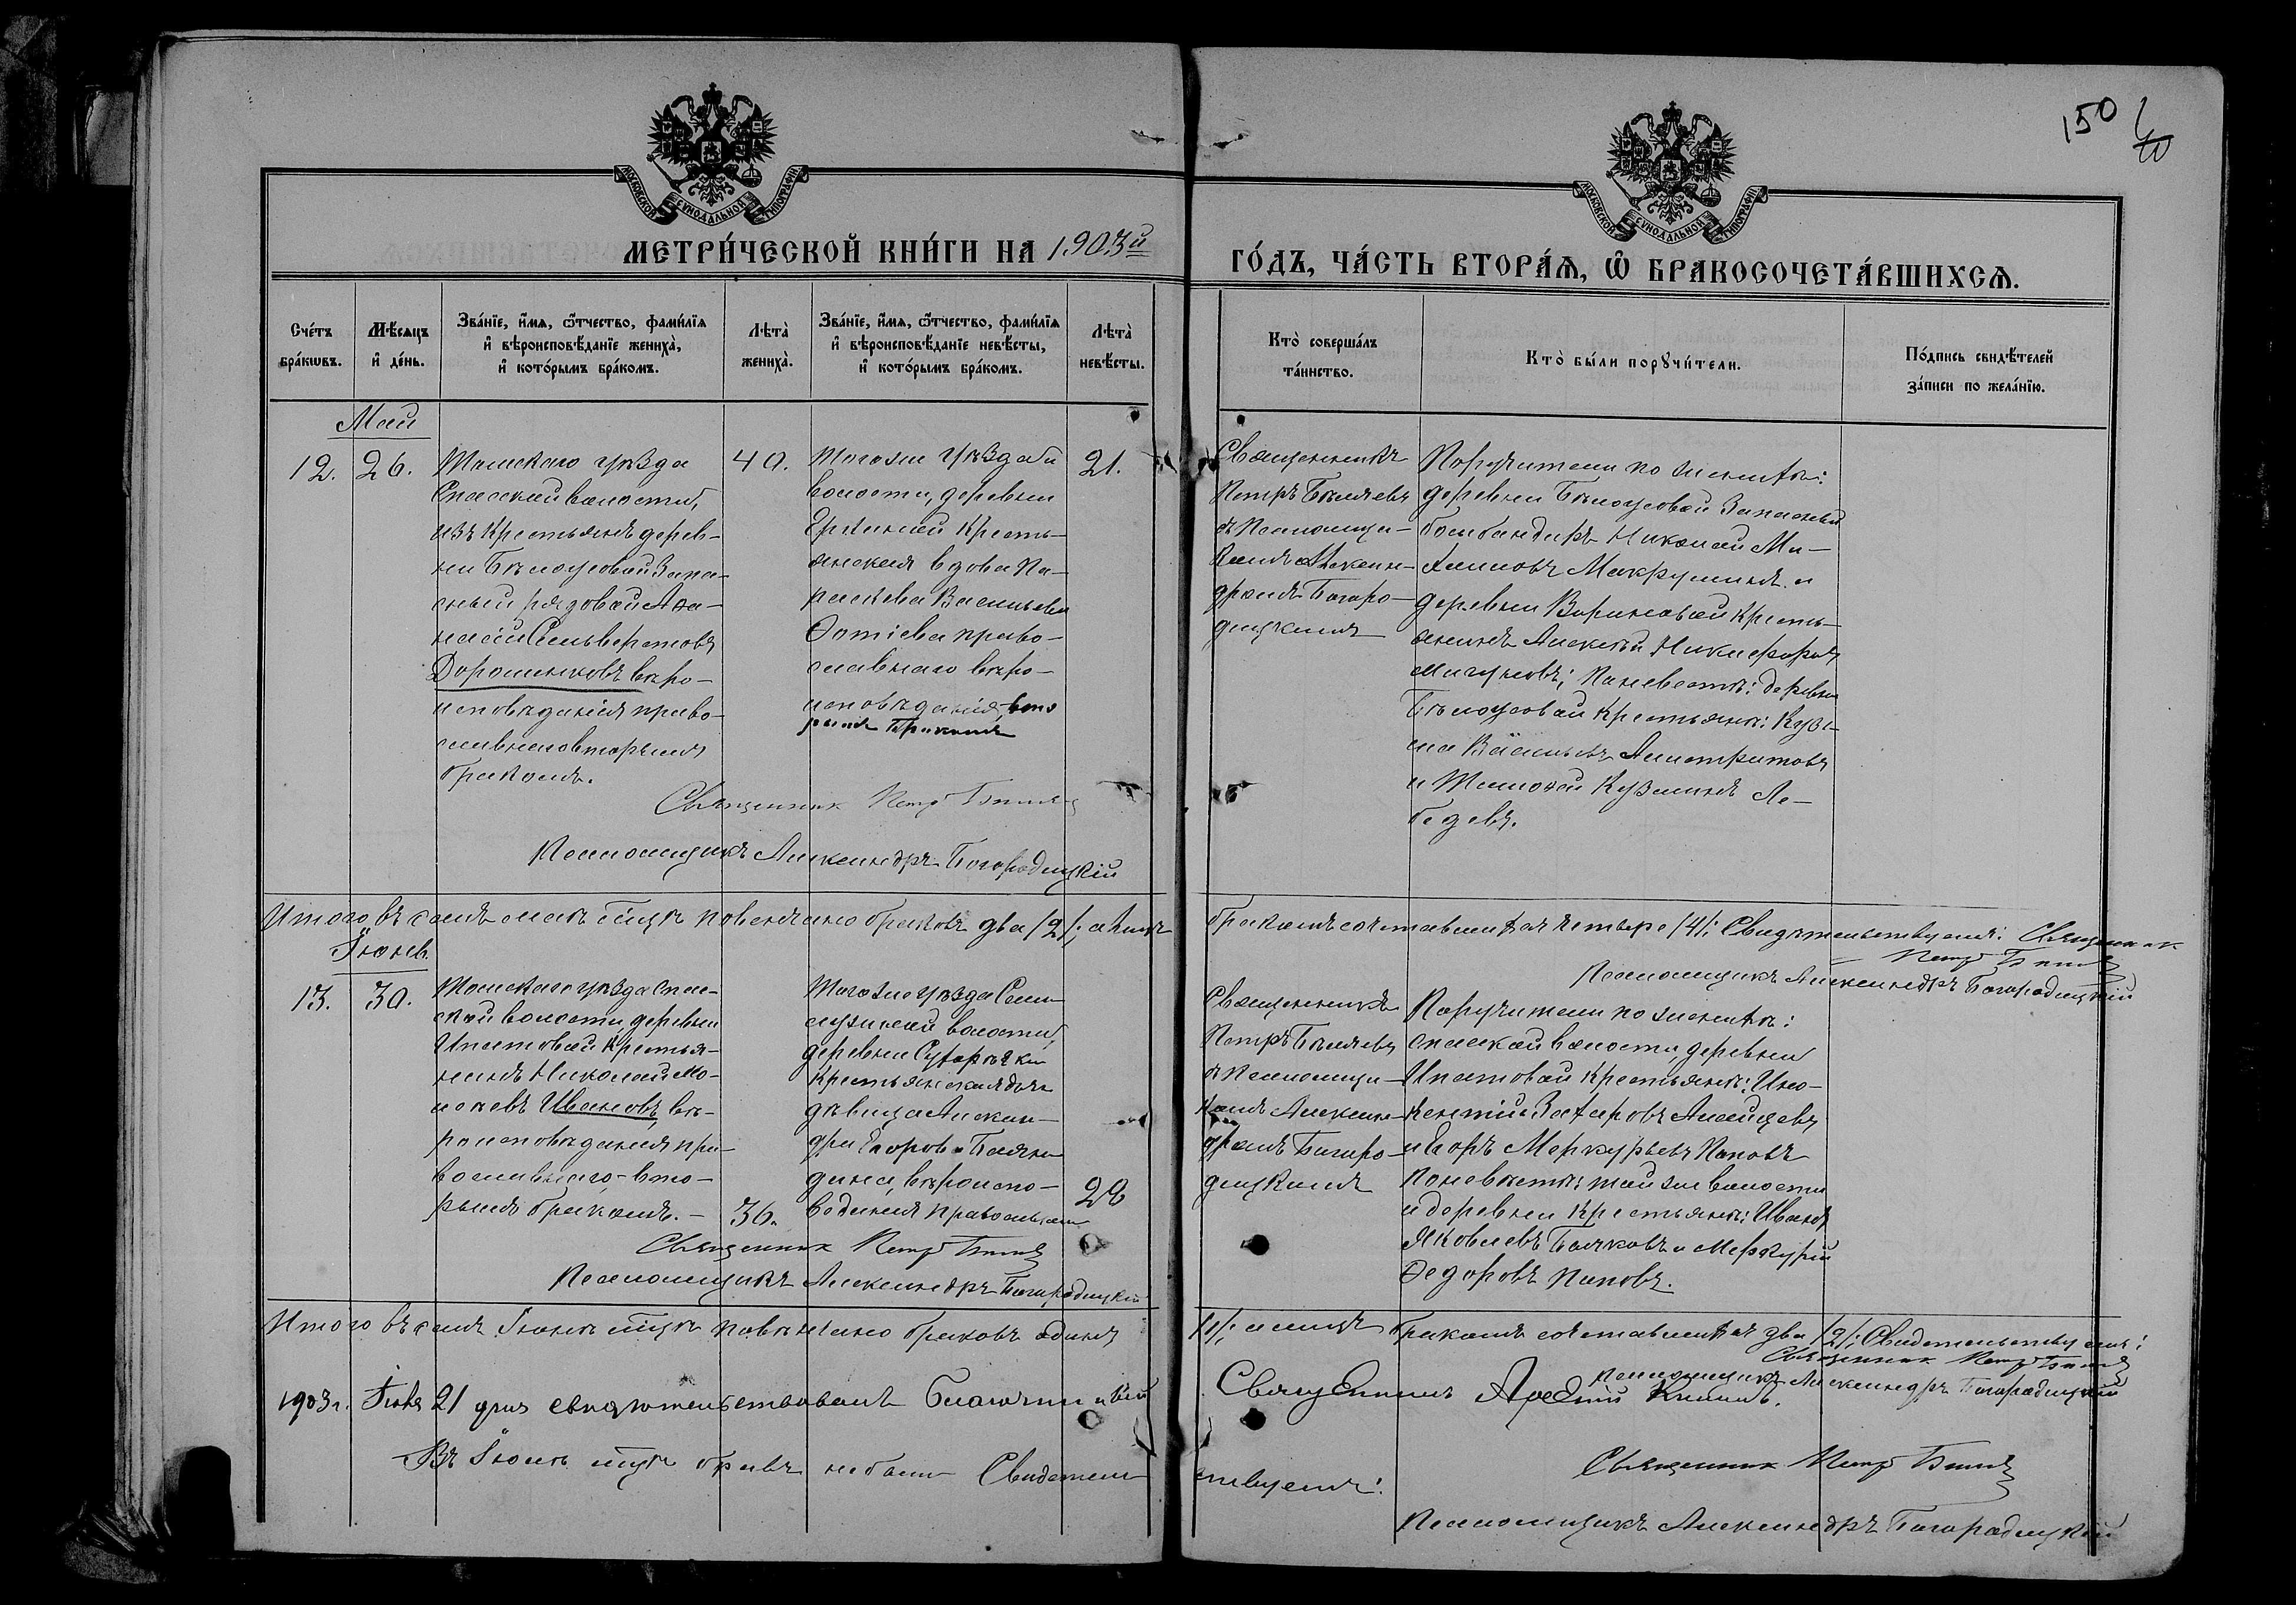 150
МОСКОВСКОЙ СѴНОДАЛЬНОЙ ТИПОГРАФІИ
МОСКОВСКОЙ СѴНОДАЛЬНОЙ ТИПОГРАФІИ
МЕТРИ́ЧЕСКОЙ КНИ́ГИ НА 1903й
ГО́ДЪ, ЧА́СТЬ ВТОРА́Ѧ, Ѽ БРАКОСОЧЕТА́ВШИХСѦ.
Сче́тъ
бра́кѡвъ.
Мѣ́сяцъ
и҆ де́нь.
Зва́нїе, и҆́мѧ, ѻ҆́тчество, фами́лїѧ
и҆ вѣроисповѣ́данїе жениха̀,
и҆ кото́рымъ бра́комъ.
Лѣта̀
жениха̀.
Зва́нїе, и҆́мѧ, ѻ҆́тчество, фами́лїѧ
и҆ вѣроисповѣ́данїе невѣ́сты,
и҆ кото́рымъ бра́комъ.
Лѣта̀
невѣ́сты.
Кто̀ соверша́лъ
та́инство.
Кто̀ бы́ли порꙋчи́тели.
По́дпись свидѣ́телей
за́писи по жела́нїю.
Май
12.
26.
Томскаго уѣзда
Спасской волости,
изъ крестьянъ дерев-
ни Бѣлоусовой Запа-
сный рядовой Аѳа-
насій Сельверстовъ
Дорошенковъ вѣро-
исповѣданія право-
славнаго вторымъ
бракомъ.
40.
Того же уѣзда и
волости, деревни
кресть-
янская вдова Па-
раскева Васильева
Фотіева право-
славнаго вѣро-
исповѣданія, вто
рымъ бракомъ
21.
Священникъ
Петръ Бѣляевъ
съ псаломщи-
комъ Алексан-
дромъ Богоро-
дицкимъ
Поручители по женихѣ:
деревни Бѣлоусовой Запасный
бомбандиръ Николай Ми-
хайловъ Макрушинъ и
деревни Вориновой кресть-
янинъ Алексѣй Никифоровъ
Мигуновъ; по невестѣ: деревни
Бѣлоусовой крестьяне: Кузь-
ма Васильевъ Алистратовъ
и Тимофей Кузминъ Ле-
бедевъ.
Священник Петр Бѣляев
Псаломщикъ Александръ Богородицкій
Итого въ семъ маѣ мѣсяцѣ повенчано браковъ два /2/; а лицъ
бракомъ сочетавшихся четыре /4/; Свидѣтельствуемъ: Священник
Петр Бѣляев
Псаломщикъ Александръ Богородицкій
Іюнь
13.
30.
Томскаго уѣзда Спас-
ской волости, деревни
Ипатовой крестья-
нинъ Николай Мо-
исѣевъ Ивановъ, вѣ-
роисповѣданія пра-
вославнаго, вто-
рымъ бракомъ. –
36.
Того же уѣзда Семи-
лужной волости,
деревни
крестьянская дочь
дѣвица Алексан-
дра Егорова
дина, вѣроиспо-
веданія православнаго
28
Священникъ
Петръ Бѣляевъ
съ псаломщи-
комъ Алексан-
дромъ Богоро-
дицкимъ
Поручители по женихѣ:
Спасской волости, деревни
Ипатовой крестьяне: Ино-
кентій Захаровъ
и Егоръ Меркурьевъ Поповъ
по невѣстѣ: той же волости
и деревни крестьяне: Иванъ
Яковлевъ и Меркурій
Федоровъ Поповъ.
Священник Петр Бѣляев
Псаломщикъ Александръ Богородицкій
Итого въ семъ Іюнѣ мѣсяцѣ повѣнчано браковъ одинъ
/1/; а лицъ бракомъ сочетавшихся два /2/; Свидетельствуемъ:
Священник Петр Бѣляев
Псаломщикъ Александръ Богородицкій
1903 г. 21 дня свидѣтельствовалъ Благочинный
Священникъ
Въ Іюлѣ мѣсяцѣ браковъ не было Свидетель
ствуемъ:
Священник Петр Бѣляев
Псаломщикъ Александръ Богородицкій